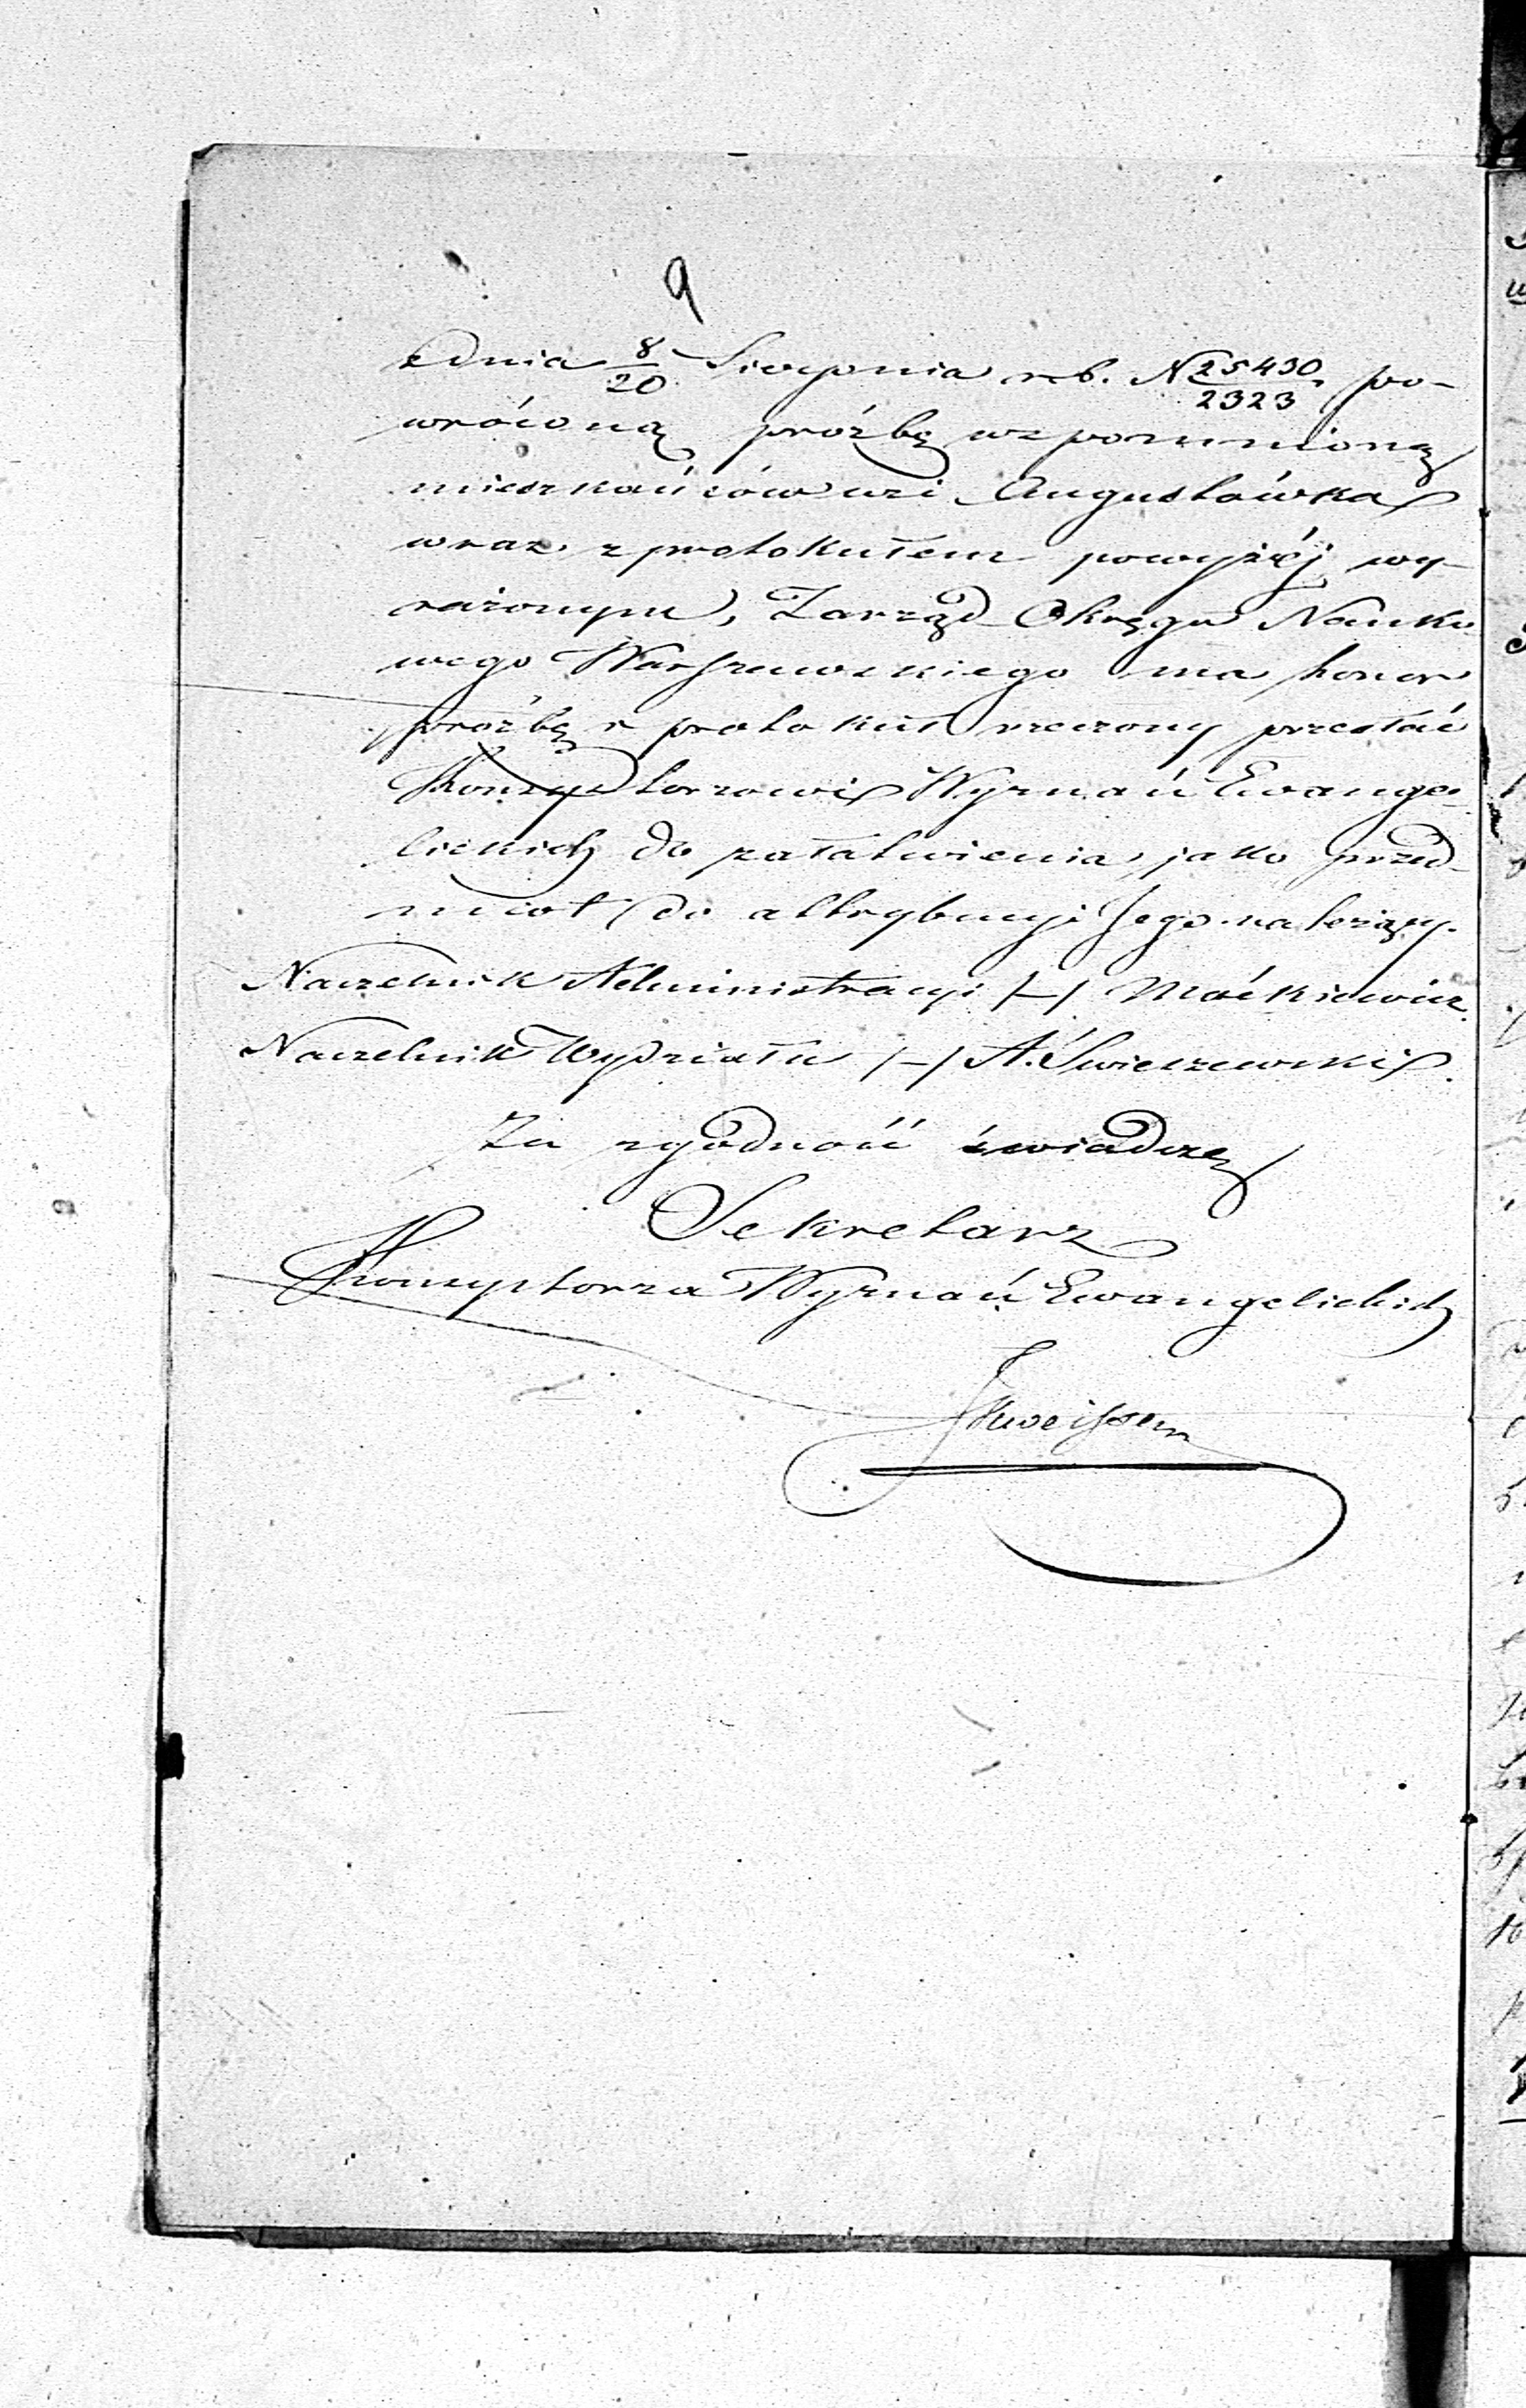 9
z dnia 8/20 Sierpnia r.b. N 25430/2323, po-
wróconą prózbę wspomnioną
mieszkańców wsi Augustówka
wraz z protokułem powyżéj wy-
rażonym, Zarząd Okręgu Nauko
wego Warszawskiego ma honor
prozbę i protokuł rzeczony przesłać
Konsystorzowi Wyznań Ewange-
lickich do załatwienia, jako przed-
miot do attrybucyi Jego należący.
Naczelnik Administracyi /-/ Maćkiewicz.
Naczelnik Wydziału /-/ A. Świeszewski.
Za zgodność świadczę
Sekretarz
Konsystorza Wyznań Ewangelickich